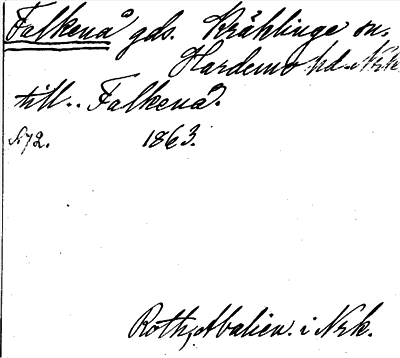 Falkenå gds. Kräklinge sn.
Hardemo hd. Nrk
till. Falkenå.
N72. 1863.
Roth, Abalien. i Nrk.